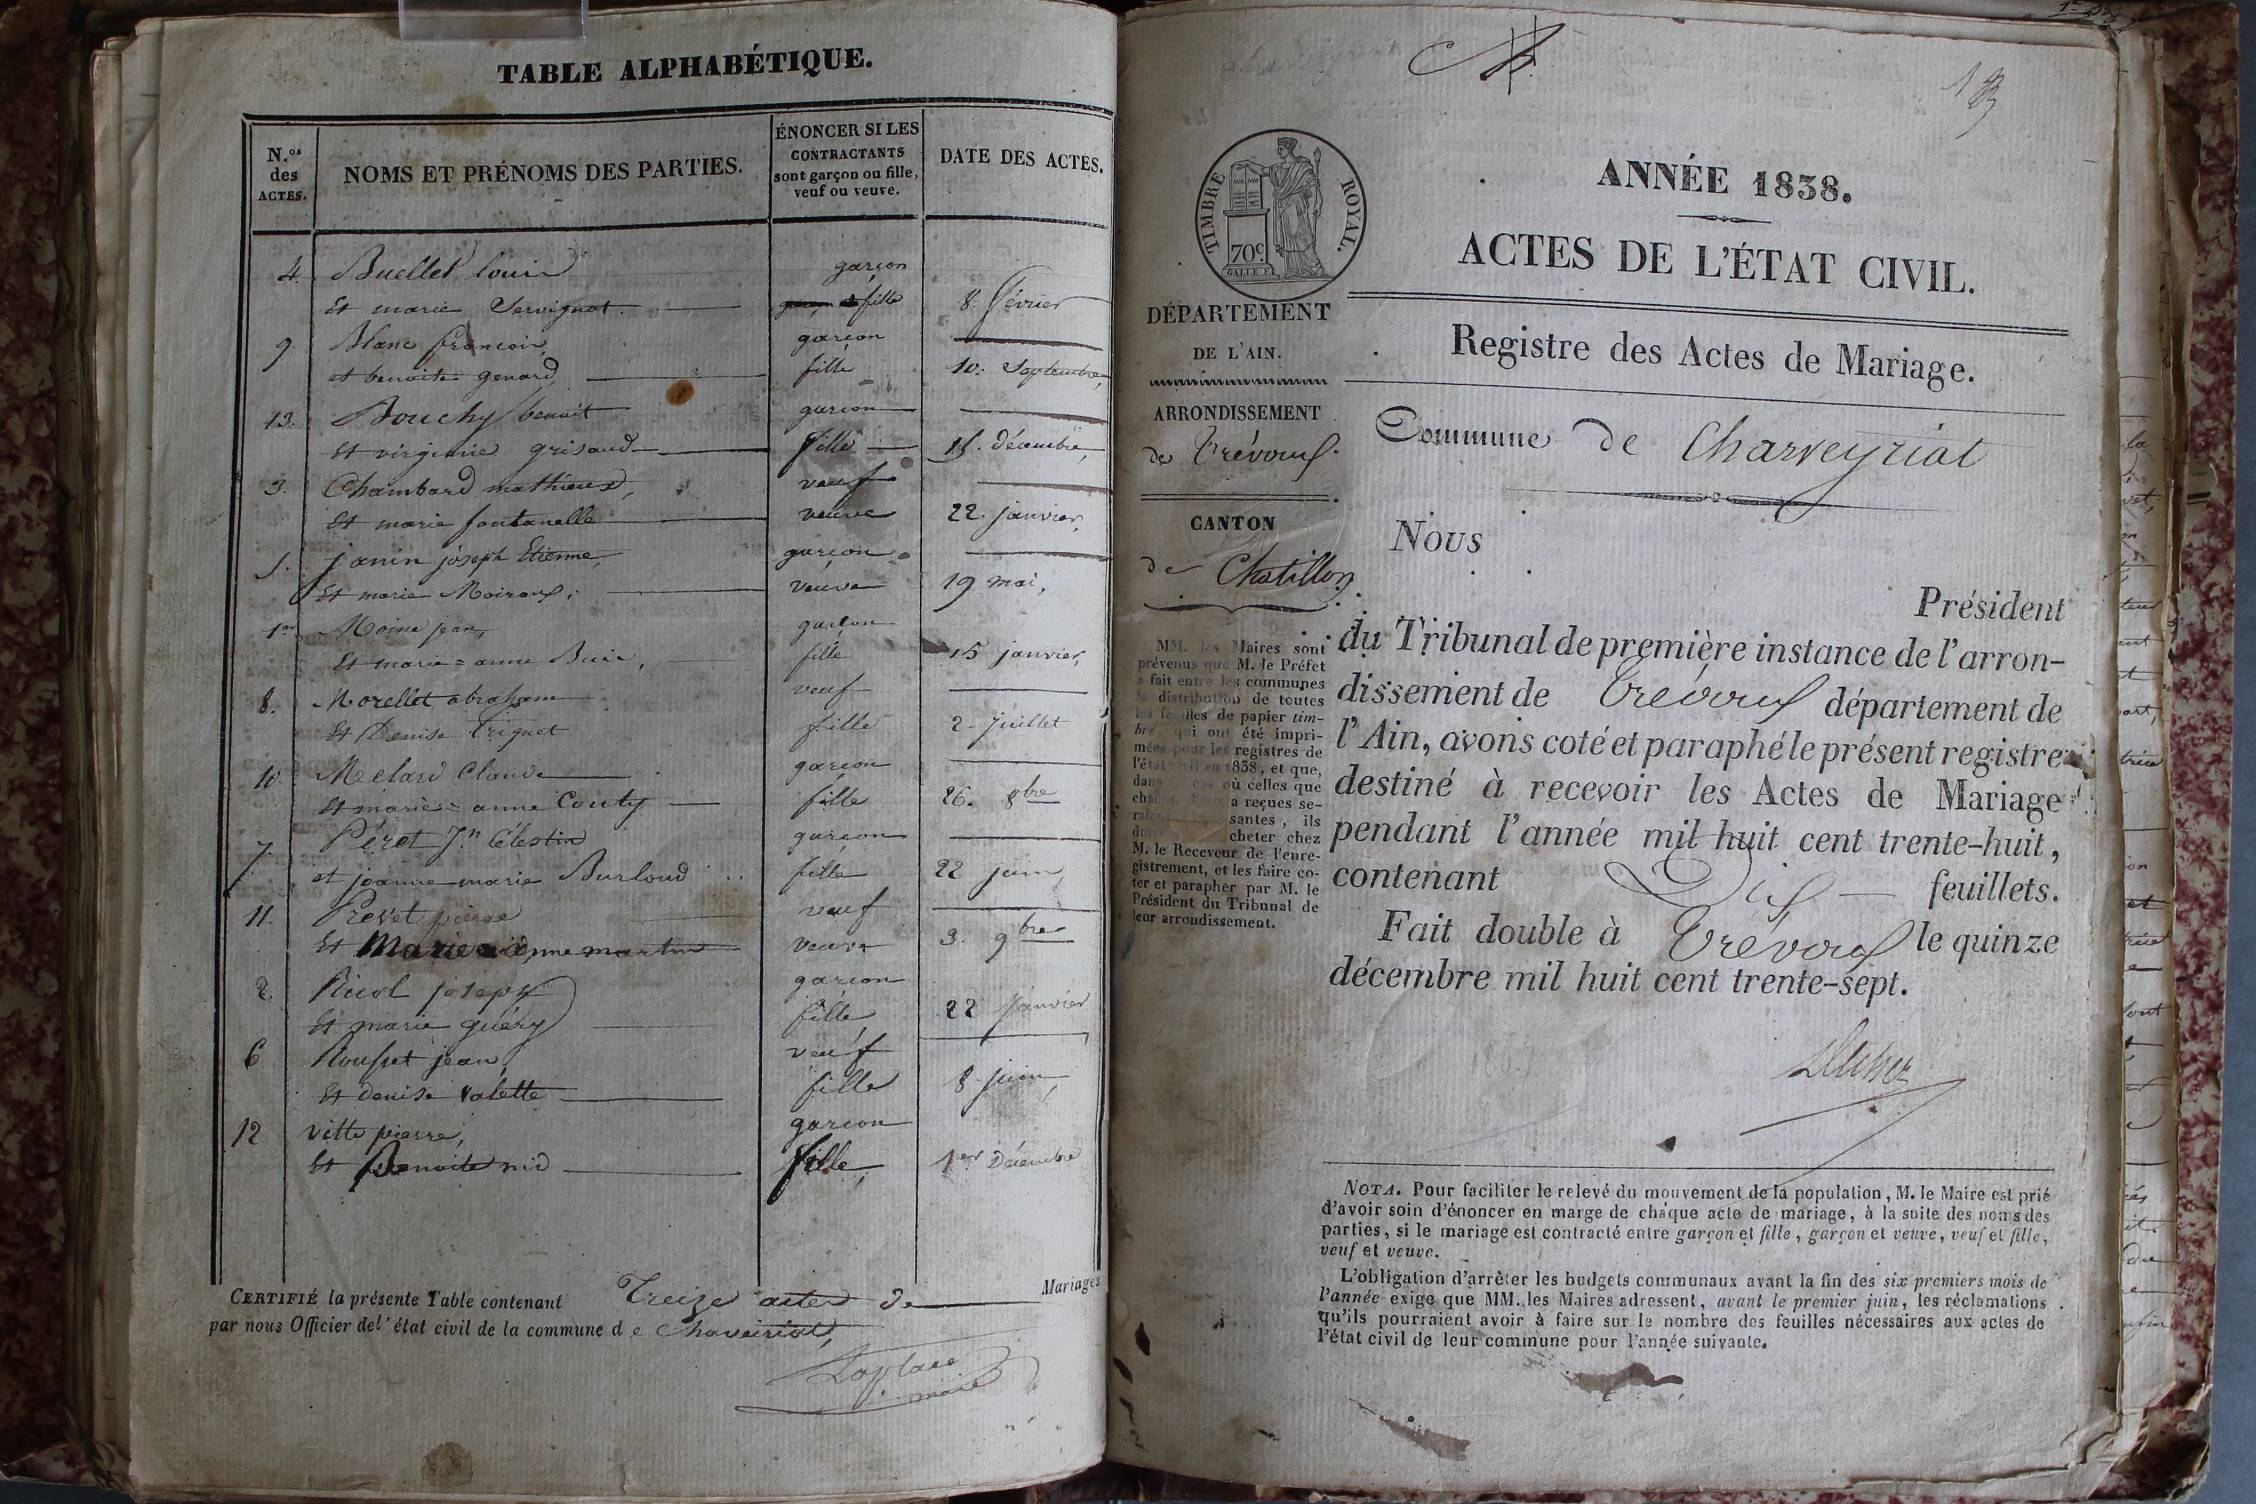 TABLE ALPHABÉTIQUE.
N.os des ACTES.
NOMS ET PRÉNOMS DES PARTIES.
ÉNONCER SI LES
CONTRACTANTS
sont garçon ou fille,
veuf ou veuve.
DATE DES ACTES.
4. Buellet louis garçon
Et marie Servignat. fille 8. février
9. Blanc françois, garçon
et benoite genard, fille 10. Septembre,
13. Bouchy benoit garçon
Et virginie grisaud fille 15. décembre,
3. Chambard mathieux, veuf
Et marie fontanelle veuve 22. janvier,
5. janin joseph Etienne, garçon
Et marie Moiroux, veuve 19 mai,
1er Moine jean, garçon
Et marie=anne Buir, fille 15 janvier,
8. Morellet abraham veuf
Et Denise Triquet fille 2. juillet
10. Melard Claude garçon
Et marie=anne Couty fille 26. 8bre
7. Péret Jn Célestin garçon
et jeanne marie Burloud fille 22 juin,
11. Prevet pierre veuf
Et Marie anne martin veuve 3. 9bre
2. Ricol joseph garçon
Et marie guéry fille 22 janvier
6 Rousset jean, veuf
Et denise valette fille 8 juin,
12 vitte pierre, garçon
Et Benoite nid fille, 1er Décembre
CERTIFIÉ la présente Table contenant Treize actes de Mariages
par nous Officier de l'état civil de la commune de Chaveiriat,
Laplace
maire
TIMBRE ROYAL.
70c
ANNÉE 1838.
ACTES DE L'ÉTAT CIVIL.
DÉPARTEMENT
DE L'AIN.
ARRONDISSEMENT
de Trévoux.
CANTON
de Chatillon
MM. les Maires sont
prévenus que M. le Préfet
a fait entre les communes
la distribution de toutes
les feuilles de papier tim-
bré, qui ont été impri-
mées pour les registres de
l'état civil en 1838, et que,
dans cas où celles que
a reçues se-
santes, ils
cheter chez
M. le Receveur de l'enre-
gistrement, et les faire co-
ter et parapher par M. le
Président du Tribunal de
leur arrondissement.
Registre des Actes de Mariage.
Commune de Charveyriat
Nous
Président
du Tribunal de première instance de l'arron-
dissement de Trévoux département de
l'Ain, avons coté et paraphé le présent registre
destiné à recevoir les Actes de Mariage
pendant l'année mil huit cent trente-huit,
contenant Dix feuillets.
Fait double à Trévoux le quinze
décembre mil huit cent trente-sept.
NOTA. Pour faciliter le relevé du mouvement de la population, M. le Maire est prié
d'avoir soin d'énoncer en marge de chaque acte de mariage, à la suite des noms des
parties, si le mariage est contracté entre garçon et fille, garçon et veuve, veuf et fille,
veuf et veuve.
L'obligation d'arrêter les budgets communaux avant la fin des six premiers mois de
l'année exige que MM. les Maires adressent, avant le premier juin, les réclamations
qu'ils pourraient avoir à faire sur le nombre des feuilles nécessaires aux actes de
l'état civil de leur commune pour l'année suivante.